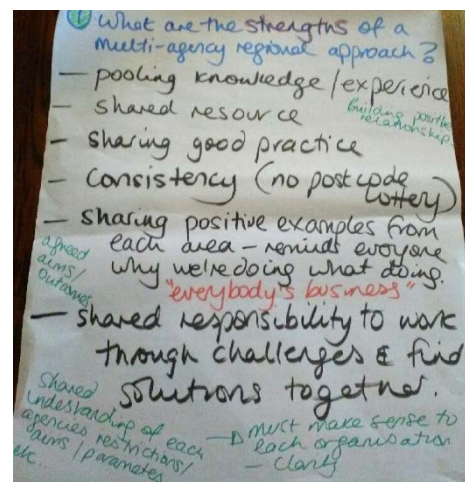 ① What are the strengths of a
multi-agency regional approach?
— pooling knowledge/experience
— shared resource
building positive
relationship
— sharing good practice
— consistency (no postcode
lottery)
— sharing positive examples from
each area – reminds everyone
why we're doing what doing.
agreed
aims/
outcomes
"everybody's business"
— shared responsibility to work
through challenges & find
solutions together.
shared
understanding of each
agencies restrictions/
aims/parameters
etc..
→ must make sense to
each organisation
– clarity